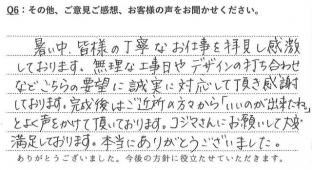 Q6：その他、ご意見ご感想、お客様の声をお聞かせください。
暑い中、皆様の丁寧なお仕事を拝見し感激
しております。無理な工事日やデザインの打ち合わせ
などこちらの要望に誠実に対応して頂き感謝
しております。完成後はご近所の方々から「いいのが出来たね」
とよく声をかけて頂いております。コジマさんにお願いして大変
満足しております。本当にありがとうございました。
ありがとうございました。今後の方針に役立たせていただきます。